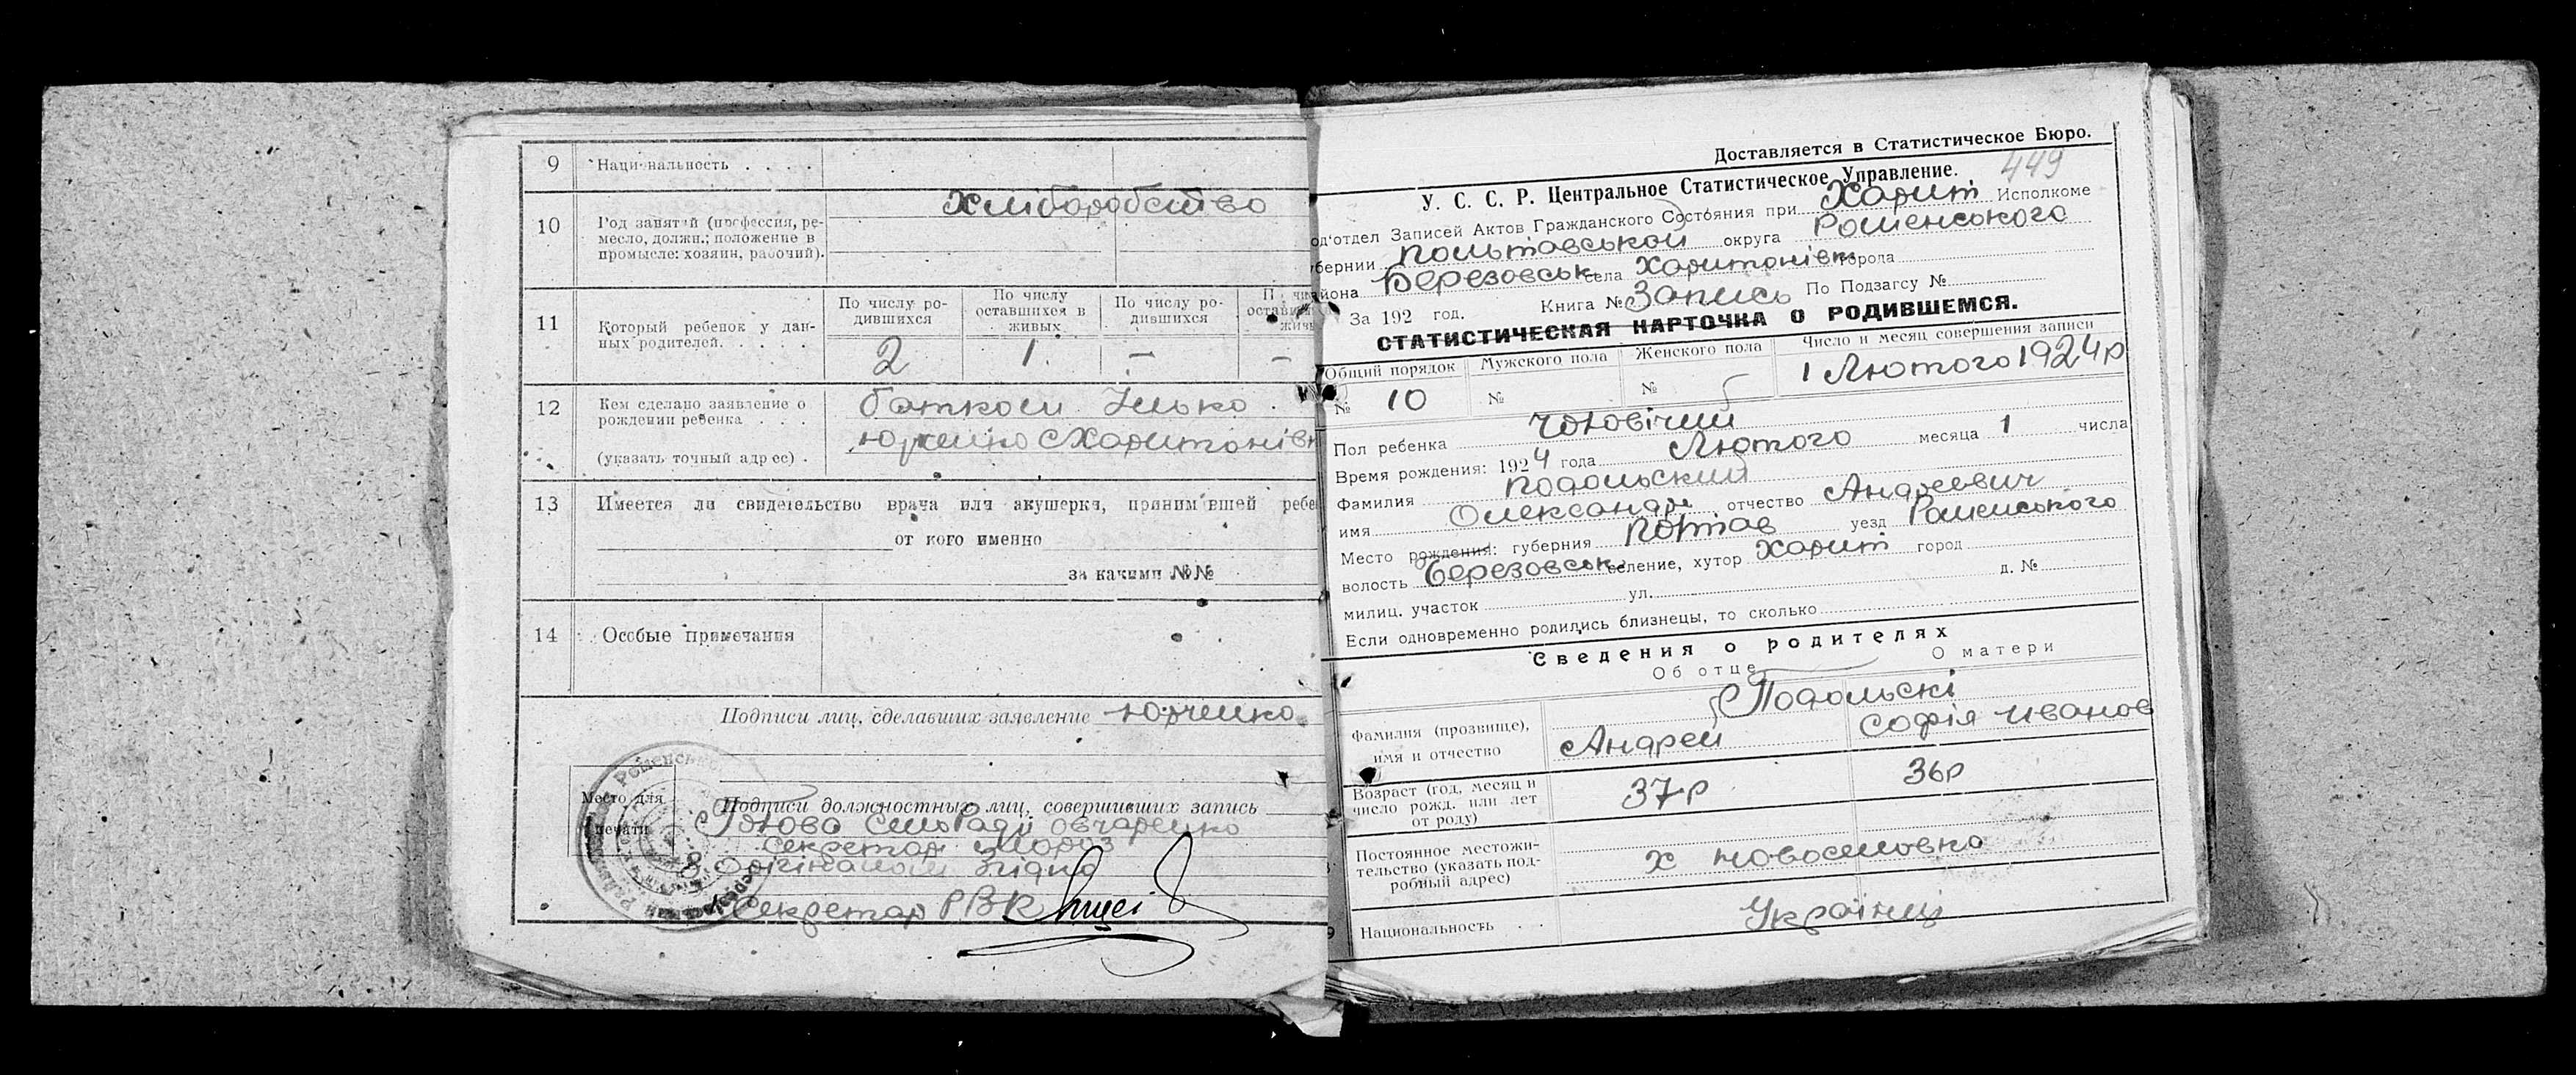 9 Национальность . . . .
Хліборобство
10 Род занятий (профессия, ре-
месло, должн.; положение в
промысле: хозяин, рабочий).
11 Который ребенок у дан-
ных родителей. . . . .
По числу ро-
дившихся
По числу
оставшихся в
живых
По числу ро-
дившихся
2 1. — —
12 Кем сделано заявление о
рождении ребенка . . .
(указать точный адрес) .
батком Ілько
Юрченко с Харитонівк
13 Имеется ли свидетельство врача или акушерки, принимавшей ребе
от кого именно
за какими №№
14 Особые примечания
Подписи лиц, сделавших заявление Юрченко
Место для
печати
Подписи должностных лиц, совершивших запись
Голова СільРади Овчаренко
Секретар Мороз
З орігіналом згідно
Секретар РВК
Доставляется в Статистическое Бюро.
449
У. С. С. Р. Центральное Статистическое Управление.
од'отдел Записей Актов Гражданского Состояния при Харит Исполкоме
убернии Полтавськой округа Роменського
йона Березовськ села Харитонівк города
За 192 год. Книга № Запись По Подзагсу №
СТАТИСТИЧЕСКАЯ КАРТОЧКА О РОДИВШЕМСЯ.
Общий порядок Мужского пола Женского пола Число и месяц совершения записи
№ 10 № № 1 Лютого 1924р
Пол ребенка Чоловічий
Время рождения: 1924 года Лютого месяца 1 числа
Фамилия Подольский
имя Олександр отчество Андреевич
Место рождения: губерния Полтав уезд Роменського
волость Березовськ селение, хутор Харит город
милиц. участок ул. д. №
Если одновременно родились близнецы, то сколько
Сведения о родителях
Об отце О матери
Подольскі
Фамилия (прозвище),
имя и отчество
Андрей Софія Иванов
Возраст (год, месяц и
число рожд. или лет
от роду)
37р 36р
Постоянное местожи-
тельство (указать под-
робный адрес)
х Новоселовка
9 Национальность . . Українці